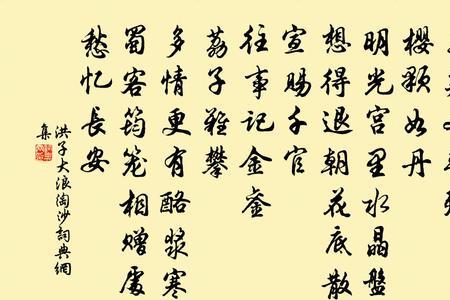 樱颗如丹
明光宫里水晶盘
想得退朝花底散
宣赐千官
往事记金銮
荔子难攀
多情更有酪浆寒
蜀客筠笼相赠处
愁忆长安
洪子大浪淘沙詞典網
集